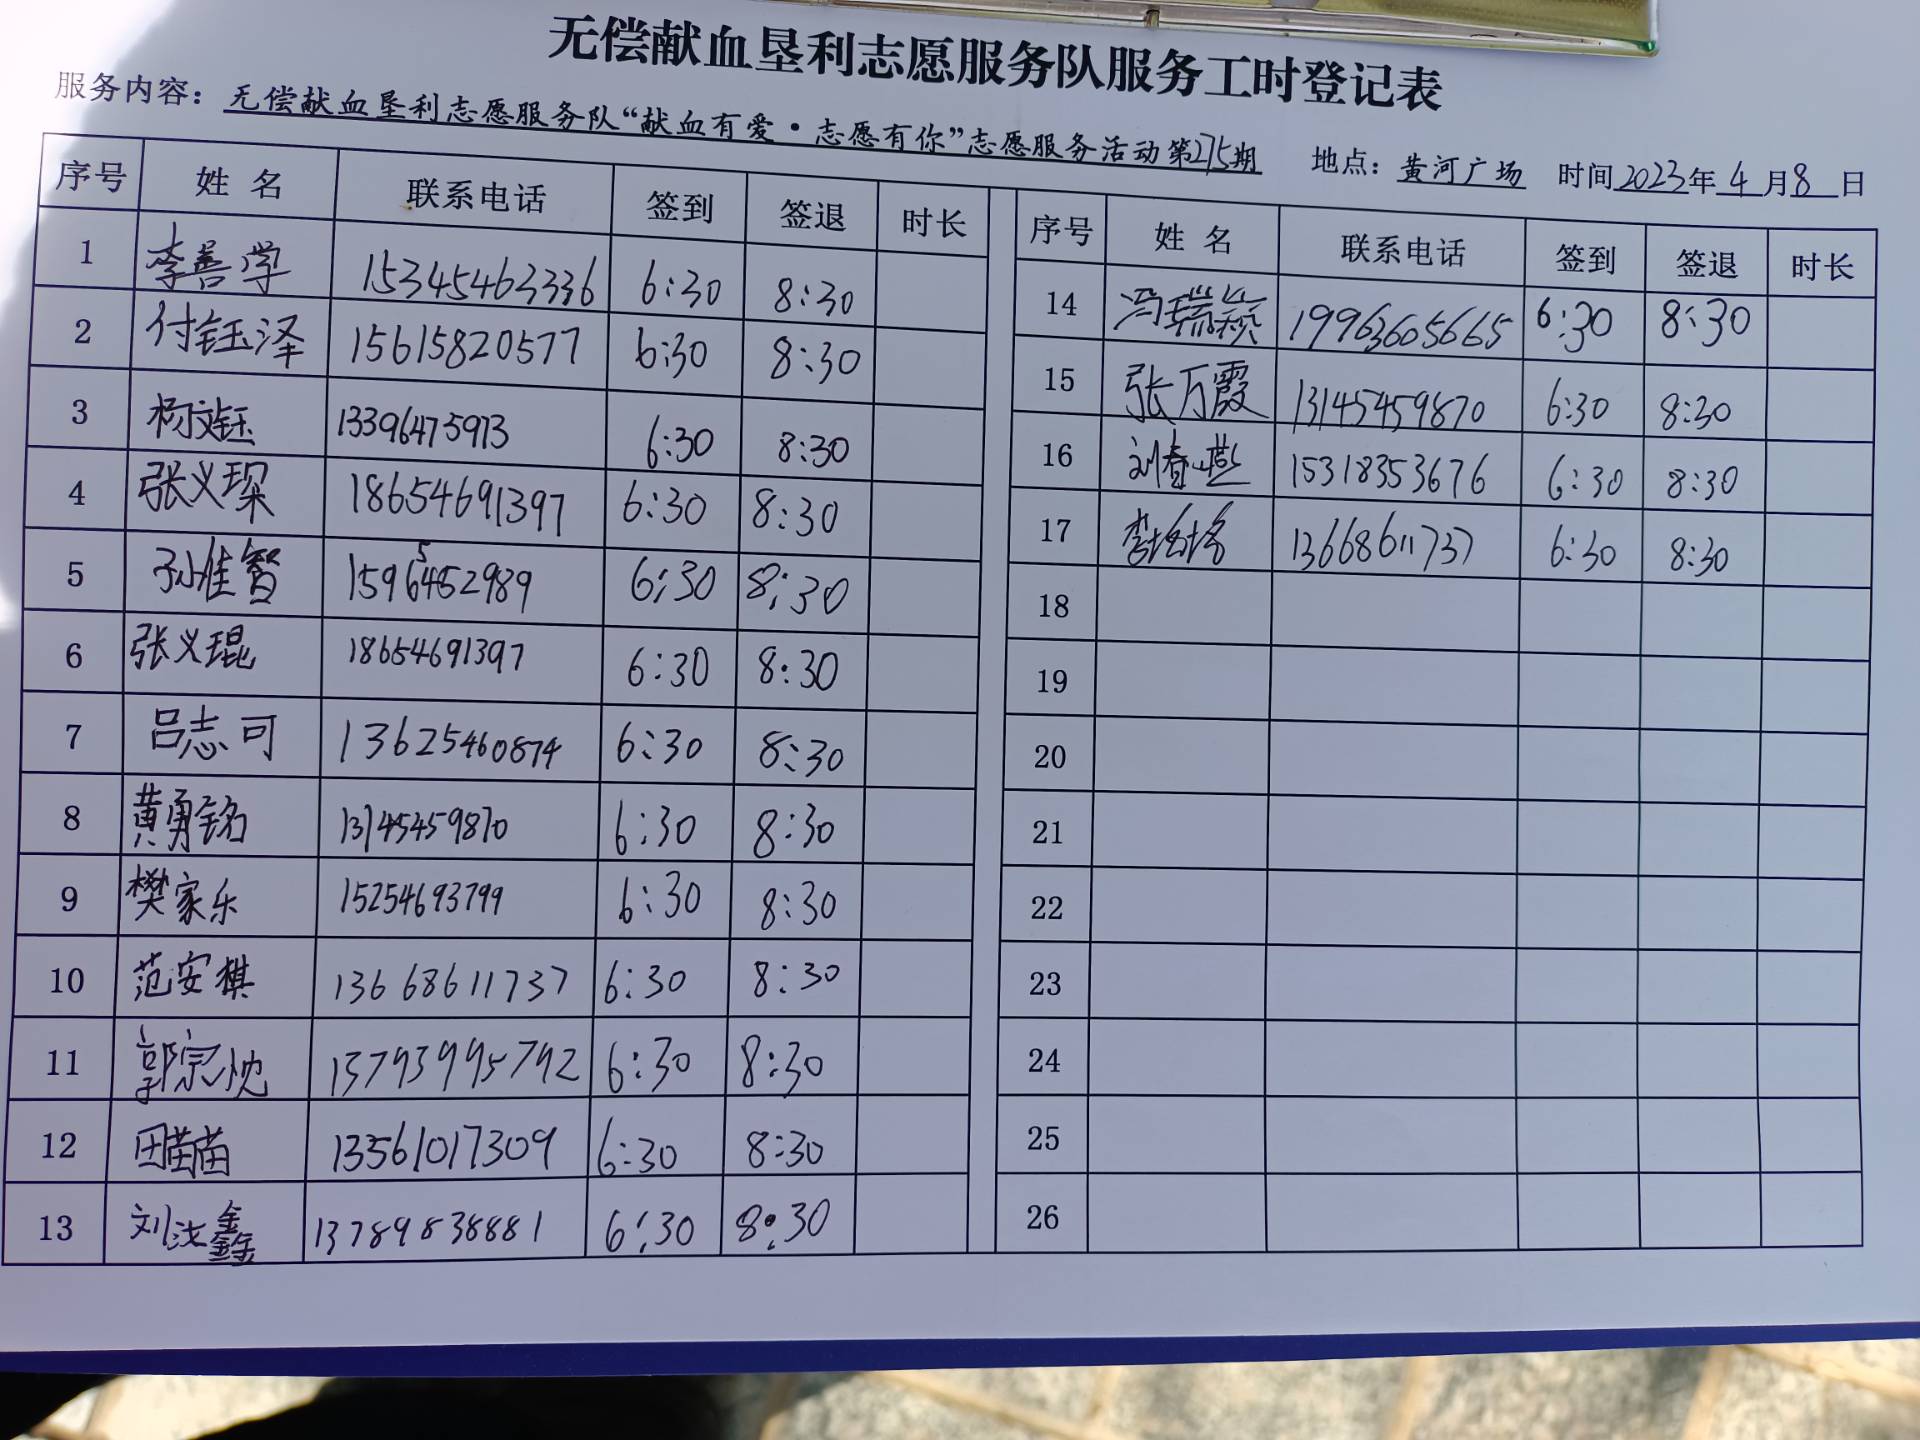 无偿献血垦利志愿服务队服务工时登记表
服务内容：无偿献血垦利志愿服务队“献血有爱·志愿有你”志愿服务活动第275期 地点：黄河广场 时间2023年4月8日
序号 姓名 联系电话 签到 签退 时长
1 李善学 15345463336 6:30 8:30
2 付钰泽 15615820577 6:30 8:30
3 杨文钰 13396475973 6:30 8:30
4 张义琛 18654691397 6:30 8:30
5 孙佳智 15965452989 6:30 8:30
6 张义琨 18654691397 6:30 8:30
7 吕志可 13625460874 6:30 8:30
8 黄勇铭 13145459870 6:30 8:30
9 樊家乐 15254693799 6:30 8:30
10 范安棋 13668611737 6:30 8:30
11 郭宗忱 13793995792 6:30 8:30
12 田苗苗 13561017309 6:30 8:30
13 刘汶鑫 13789838881 6:30 8:30
序号 姓名 联系电话 签到 签退 时长
14 冯瑞颖 19963605665 6:30 8:30
15 张万霞 13145459870 6:30 8:30
16 刘春燕 15318353676 6:30 8:30
17 李 13668611737 6:30 8:30
18
19
20
21
22
23
24
25
26